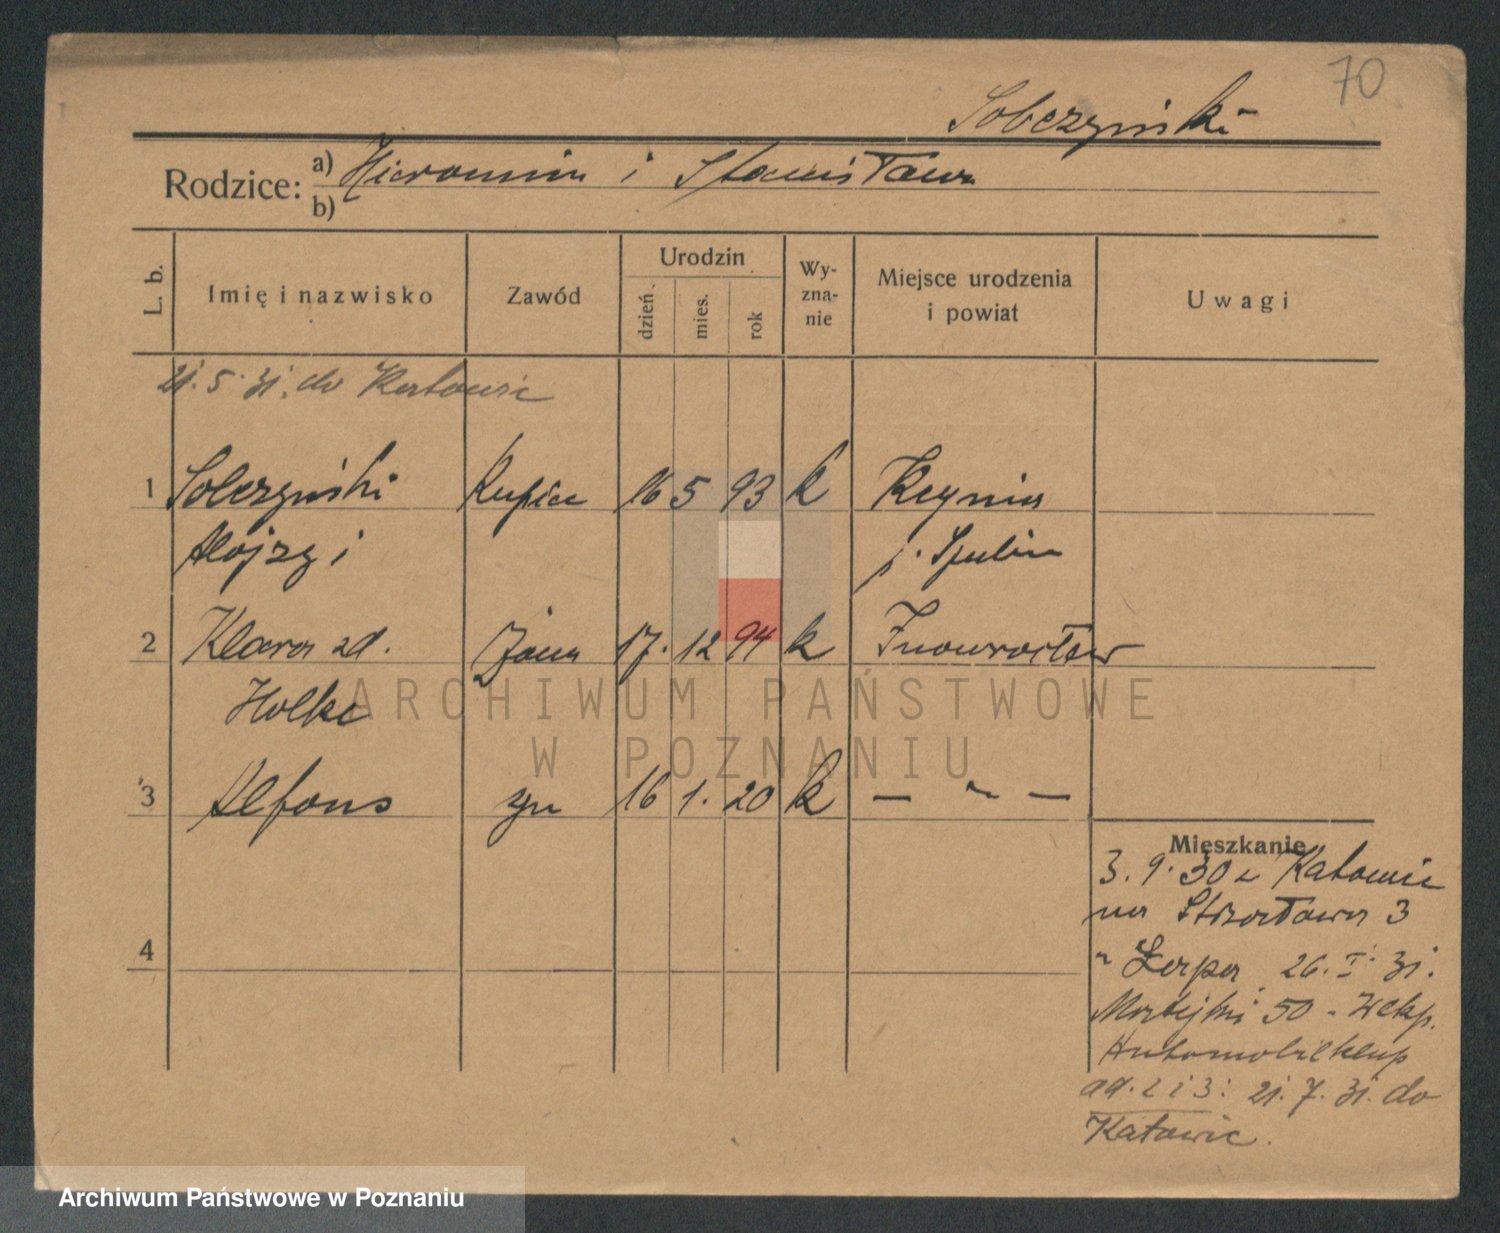 70
Sobczyński
Rodzice: a) Hieronim i Stanisława
b)
L. b. Imię i nazwisko Zawód Urodzin dzień mies. rok Wy-zna-nie Miejsce urodzenia i powiat Uwagi
21.5.31. do Katowic
1 Sobczyński Kupiec 16 5 93 k Kcynia
Alojzy i p. Szubin
2 Klara zd. żona 17. 12 94 k Inowrocław
Holke
ARCHIWUM PAŃSTWOWE
W POZNANIU
3 Alfons syn 16 1. 20 k — " —
Mieszkanie
3. 9. 30 z Katowic
na Strzałowa 3
" 26. I. 31.
Matejki 50
4
Automobilklub
ad. 2 i 3: 21. 7. 31. do
Katowic.
Archiwum Państwowe w Poznaniu